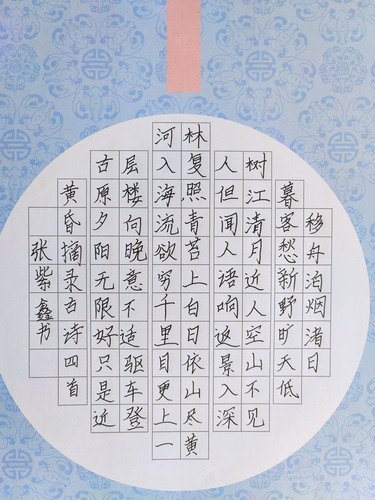 移舟泊烟渚日
暮客愁新野旷天低
树江清月近人空山不见
人但闻人语响返景入深
林复照青苔上白日依山尽黄
河入海流欲穷千里目更上一
层楼向晚意不适驱车登
古原夕阳无限好只是近
黄昏摘录古诗四首
张紫鑫书